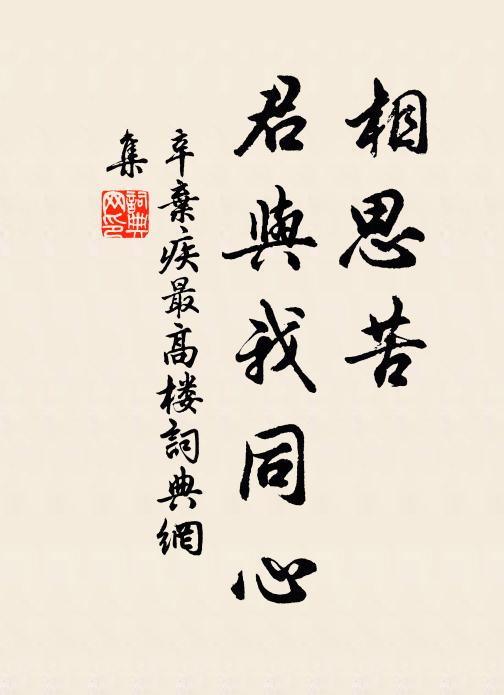 相思苦
君與我同心
辛棄疾最高楼詞典網
集
詞典網印